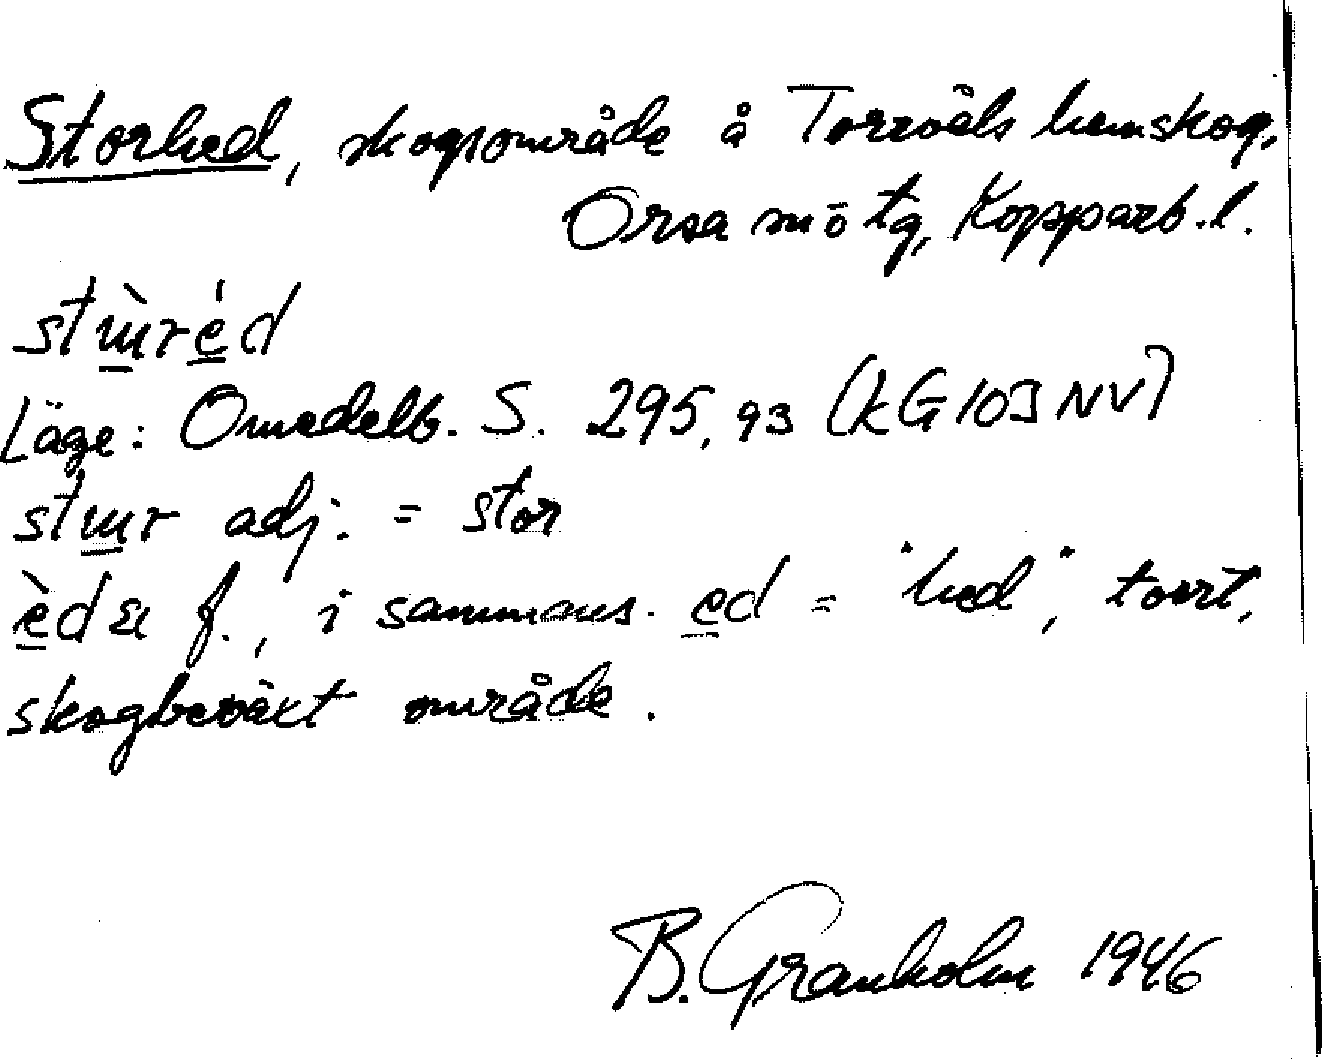 Storhed, skogsområde å Torrvåls hemskog,
Orsa sn ö tg, Kopparb. l.
Läge: Omedelb. S. 295,93 (KG 103 NV)
adj. = stor
f., i sammans. ed = "hed", torrt,
skogbeväxt område.
B. Granholm 1946